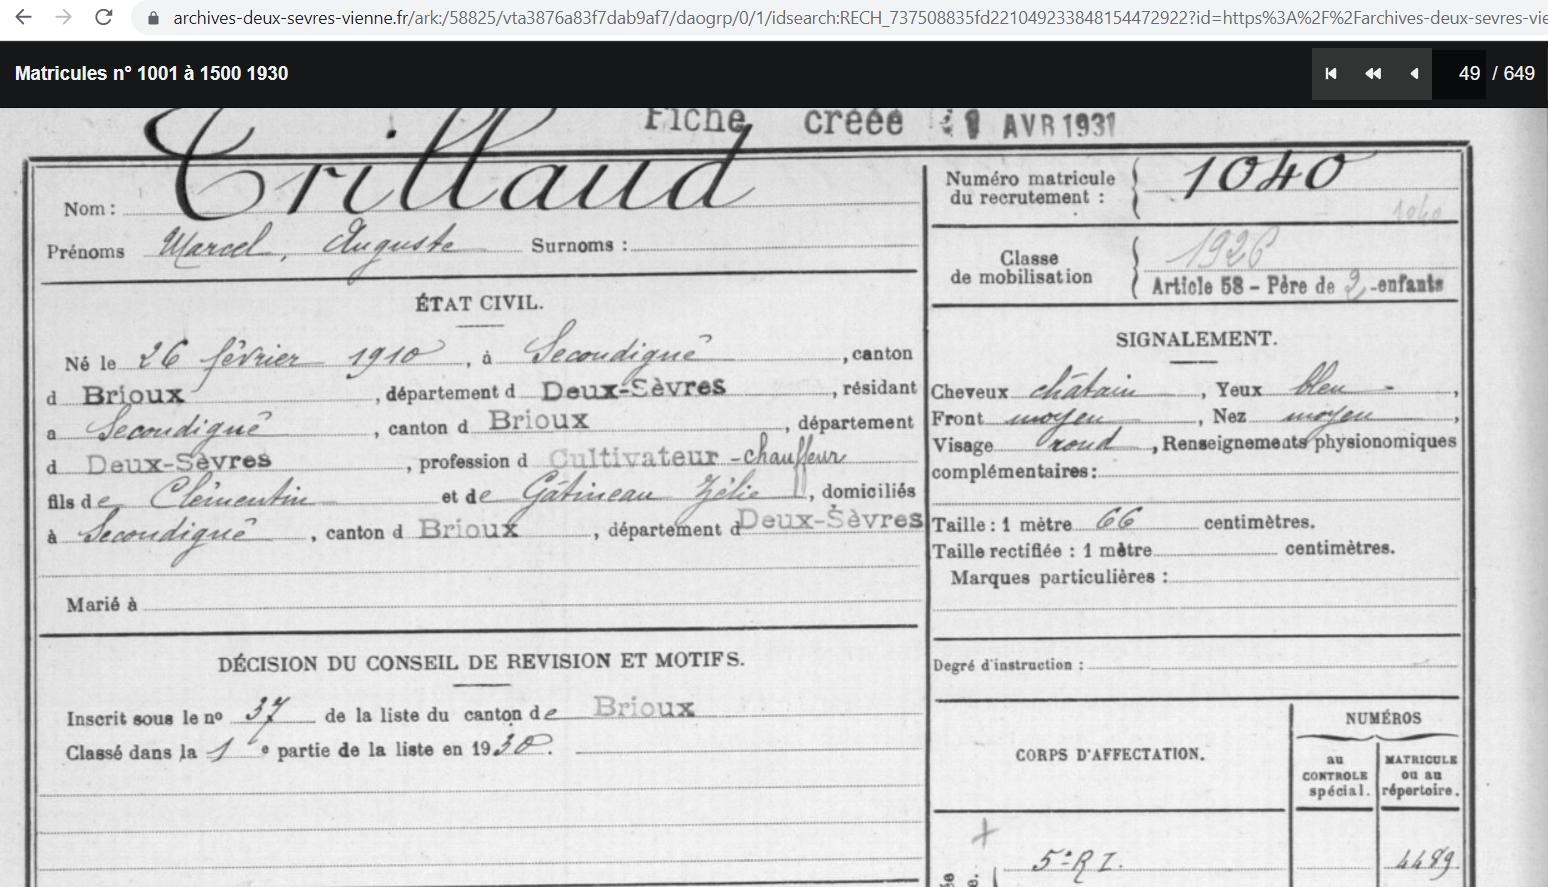 archives-deux-sevres-vienne.fr/ark:/58825/vta3876a83f7dab9af7/daogrp/0/1/idsearch:RECH_737508835fd221049233848154472922?id=https%3A%2F%2Farchives-deux-sevres-vie
Matricules n° 1001 à 1500 1930
49 / 649
Fiche créée 1 AVR 1931
Nom : Trillaud
Prénoms Marcel, Auguste Surnoms :
ÉTAT CIVIL.
Né le 26 février 1910, à Secondigné, canton
d Brioux, département d Deux-Sèvres, résidant
a Secondigné, canton d Brioux, département
d Deux-Sèvres, profession d Cultivateur - chauffeur
fils de Clémentin et de Gâtineau Zélie, domiciliés
à Secondigné, canton d Brioux, département d Deux-Sèvres
Marié à
DÉCISION DU CONSEIL DE REVISION ET MOTIFS.
Inscrit sous le nº 37 de la liste du canton de Brioux
Classé dans la 1e partie de la liste en 1930.
Numéro matricule
du recrutement : 1040
1040
Classe
de mobilisation 1926
Article 58 - Père de 2 -enfants
SIGNALEMENT.
Cheveux châtain, Yeux bleu -,
Front moyen, Nez moyen,
Visage rond, Renseignements physionomiques
complémentaires:
Taille : 1 mètre 66 centimètres.
Taille rectifiée : 1 mètre centimètres.
Marques particulières :
Degré d'instruction :
CORPS D'AFFECTATION.
NUMÉROS
au
CONTROLE
spécial.
MATRICULE
ou au
répertoire.
5e R I. 4489